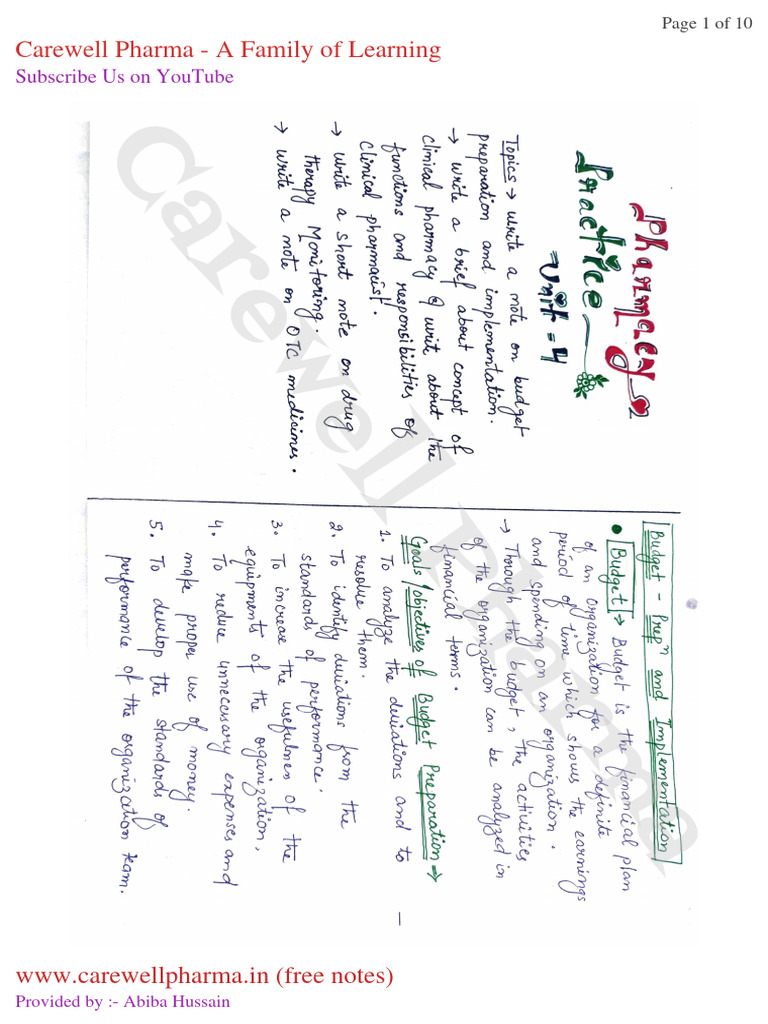 Page 1 of 10
Carewell Pharma - A Family of Learning
Subscribe Us on YouTube
Pharmacy
Practice
Unit = 4
Topics → write a note on budget
preparation and implementation.
→ write a brief about concept of
clinical pharmacy & writ about the
functions and responsibilities of
clinical pharmacist.
→ write a short note on drug
therapy Monitoring.
→ write a note on OTC medicines.
Budget - Prepn and Implementation
• Budget → Budget is the financial plan
of an organization for a definite
period of time which shows the earnings
and spending on an organization.
→ Through the budget, the activities
of the organization can be analyzed in
financial terms.
Goals/objectives of Budget Preparation ⇒
1. To analyze the deviations and to
resolve them.
2. To identify deviations from the
standards of performance.
3. To increase the usefulness of the
equipments of the organization,
4. To reduce unnecessary expenses and
make proper use of money.
5. To develop the standards of
performance of the organization team.
1
Carewell Pharma
www.carewellpharma.in (free notes)
Provided by :- Abiba Hussain